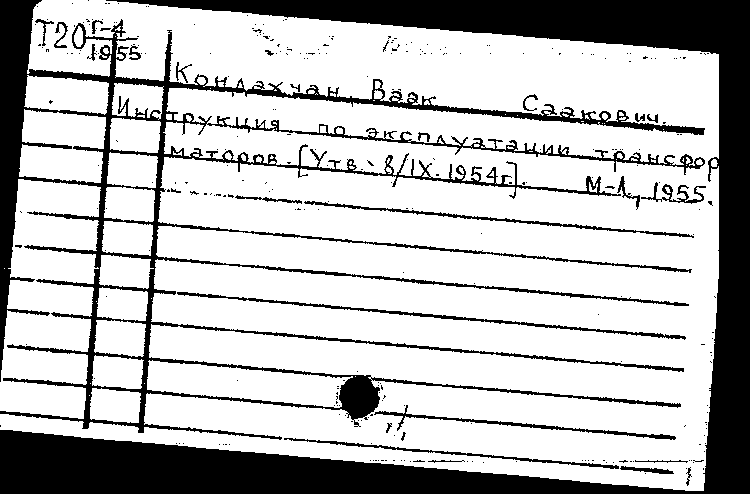 Т20 Г-4
1955
Кондахчан, Ваак Саакович.
Инструкция по эксплуатации трансфор
маторов. [Утв. 8/IX. 1954г]. М-Л, 1955.